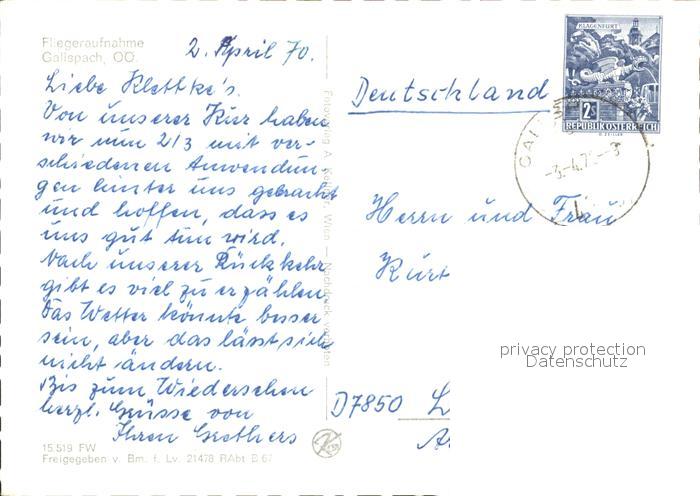 Fliegeraufnahme
Gallspach, OÖ.
2. April 70.
Liebe Klettke's.
Von unserer Kur haben
wir nun 2/3 mit ver-
schiedenen Anwendun-
gen hinter uns gebracht
und hoffen, dass es
uns gut tun wird.
Nach unserer Rückkehr
gibt es viel zu erzählen.
Das Wetter könnte besser
sein, aber das lässt sich
nicht ändern.
Bis zum Wiedersehen
herzl. Grüsse von
Ihren
15.519 FW
Freigegeben v. Bm. f. Lv. 21478 RAbt B.67
Wien
Nachdruck verboten
Deutschland
KLAGENFURT
2S
REPUBLIK ÖSTERREICH
Herrn und Frau
Kurt
privacy protection
Datenschutz
D7850 L